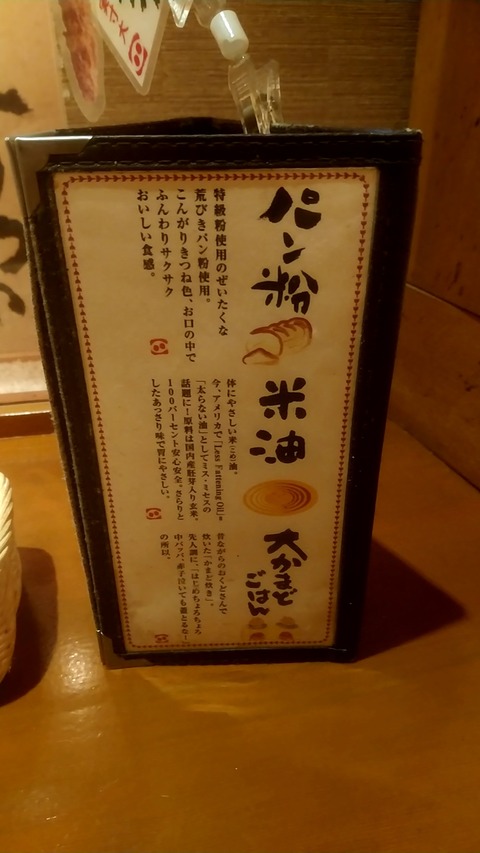 パン粉
特級粉使用のぜいたくな
荒びきパン粉使用。
こんがりきつね色、お口の中で
ふんわりサクサク
おいしい食感。
米油
体にやさしい米(こめ)油。
今、アメリカで「Less Fattening Oil」=
「太らない油」としてミス・ミセスの
話題に!原料は国内産胚芽入り玄米、
100パーセント安心安全。さらりと
したあっさり味で胃にやさしい。
大かまど
ごはん
昔ながらのおくどさんで
炊いた「かまど炊き」。
先人調に、「はじめちょろちょろ
中パッパ、赤子泣いても蓋とるな!」
の所以。